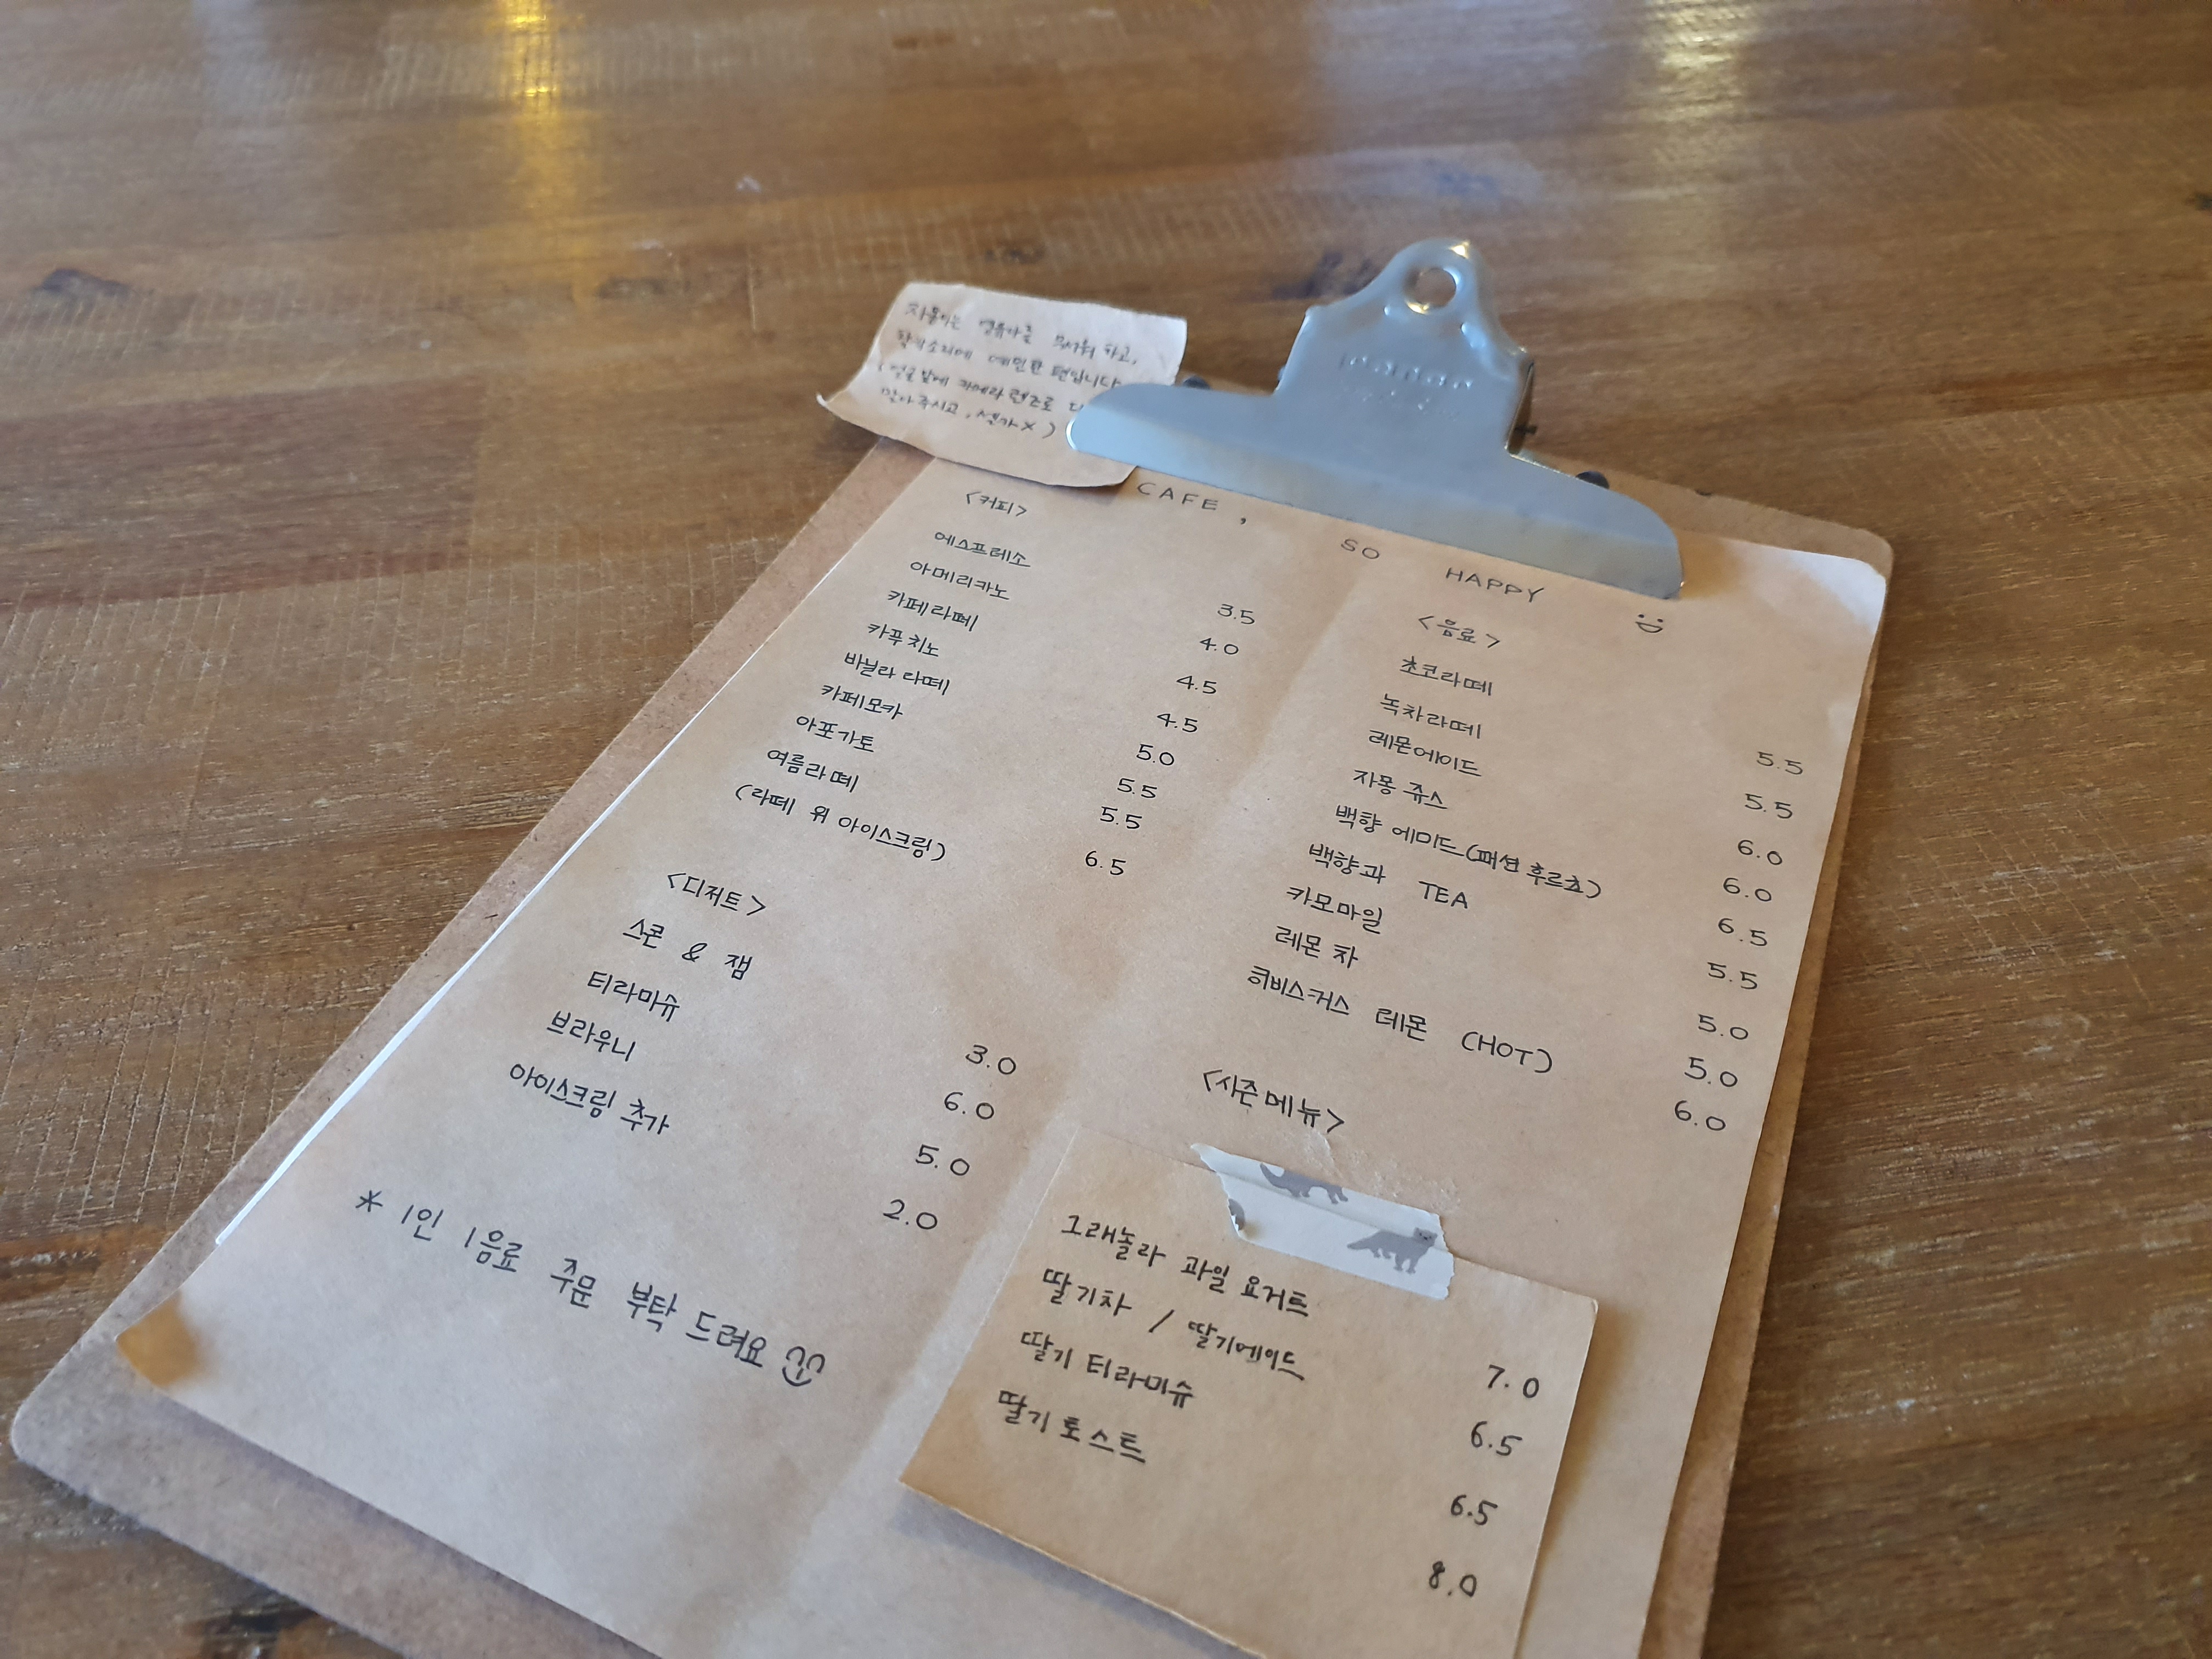 자몽이는 영유아를 무서워 하고,
발소리에 예민한 편입니다
(얼굴 앞에 카메라 렌즈로
말아주시고, 셀카X)
CAFE, SO HAPPY
<커피>
에스프레소 3.5
아메리카노 4.0
카페라떼 4.5
카푸치노 4.5
바닐라 라떼 5.0
카페모카 5.5
아포가토 5.5
여름라떼 6.5
(라떼 위 아이스크림)
<디저트>
스콘 & 잼 3.0
티라미슈 6.0
브라우니 5.0
아이스크림 추가 2.0
* 1인 1음료 주문 부탁 드려요
<음료>
초코라떼 5.5
녹차라떼 5.5
레몬에이드 6.0
자몽 쥬스 6.0
백향 에이드(패션후르츠) 6.5
백향과 TEA 5.5
카모마일 5.0
레몬 차 5.0
히비스커스 레몬 (HOT) 6.0
<시즌메뉴>
그래놀라 과일 요거트 7.0
딸기차 / 딸기에이드 6.5
딸기 티라미슈 6.5
딸기 토스트 8.0